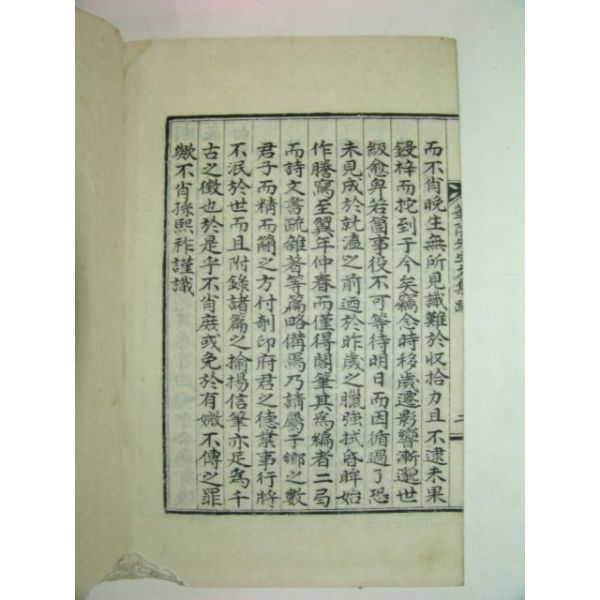 而不肖晚生無所見識難於収拾力且不逮未果
鋟梓而拕到于今矣竊念時移歲遷影響漸邈世
級愈卑若箇事役不可等待明日而因循過了恐
未見成於就溘之前迺於昨歲之臘強拭昏眸始
作謄寫至翼年仲春而僅得閣筆其爲編者二局
而詩文書疏雜著等篇略備焉乃請屬于鄉之數
君子而精而簡之方付剞印府君之德業事行將
不泯於世而且附錄諸篇之揄揚信筆亦足爲千
古之徵也於是乎不肖庶或免於有媺不傳之罪
歟不肖孫熙祚謹識
先生文集
二